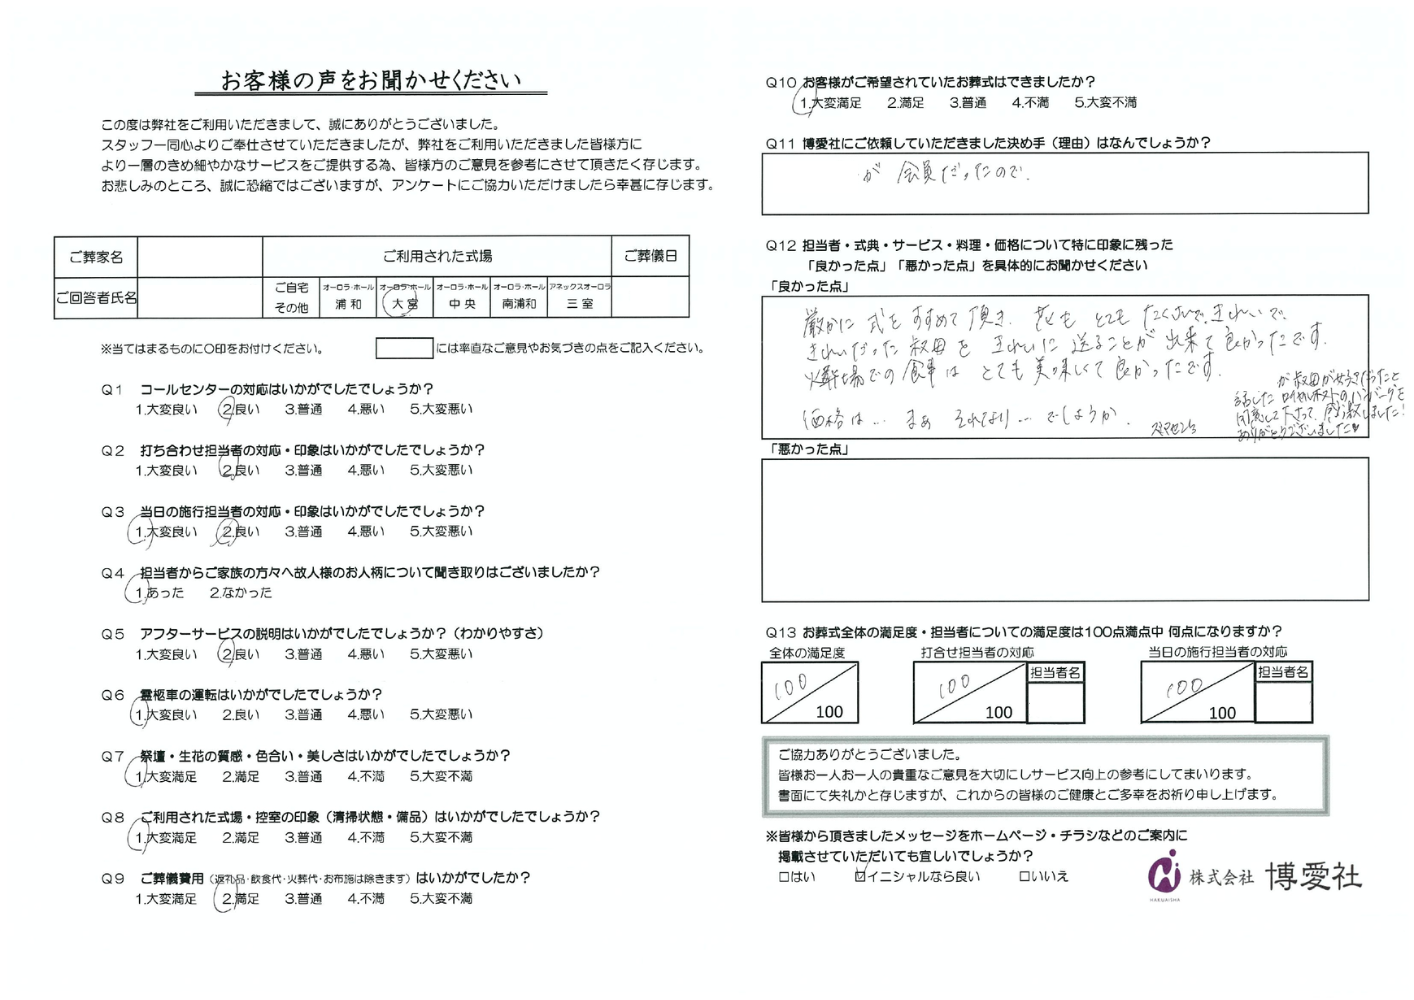 お客様の声をお聞かせください
この度は弊社をご利用いただきまして、誠にありがとうございました。
スタッフ一同心よりご奉仕させていただきましたが、弊社をご利用いただきました皆様方に
より一層のきめ細やかなサービスをご提供する為、皆様方のご意見を参考にさせて頂きたく存じます。
お悲しみのところ、誠に恐縮ではございますが、アンケートにご協力いただけましたら幸甚に存じます。
ご葬家名 ご利用された式場 ご葬儀日
ご回答者氏名 ご自宅 その他 オーロラ・ホール 浦和 オーロラ・ホール 大宮 オーロラ・ホール 中央 オーロラ・ホール 南浦和 アネックスオーロラ 三室
※当てはまるものに〇印をお付けください。 には率直なご意見やお気づきの点をご記入ください。
Q1 コールセンターの対応はいかがでしたでしょうか？
1.大変良い 2.良い 3.普通 4.悪い 5.大変悪い
Q2 打ち合わせ担当者の対応・印象はいかがでしたでしょうか？
1.大変良い 2.良い 3.普通 4.悪い 5.大変悪い
Q3 当日の施行担当者の対応・印象はいかがでしたでしょうか？
1.大変良い 2.良い 3.普通 4.悪い 5.大変悪い
Q4 担当者からご家族の方々へ故人様のお人柄について聞き取りはございましたか？
1.あった 2.なかった
Q5 アフターサービスの説明はいかがでしたでしょうか？（わかりやすさ）
1.大変良い 2.良い 3.普通 4.悪い 5.大変悪い
Q6 霊柩車の運転はいかがでしたでしょうか？
1.大変良い 2.良い 3.普通 4.悪い 5.大変悪い
Q7 祭壇・生花の質感・色合い・美しさはいかがでしたでしょうか？
1.大変満足 2.満足 3.普通 4.不満 5.大変不満
Q8 ご利用された式場・控室の印象（清掃状態・備品）はいかがでしたでしょうか？
1.大変満足 2.満足 3.普通 4.不満 5.大変不満
Q9 ご葬儀費用（返礼品・飲食代・火葬代・お布施は除きます）はいかがでしたか？
1.大変満足 2.満足 3.普通 4.不満 5.大変不満
Q10 お客様がご希望されていたお葬式はできましたか？
1.大変満足 2.満足 3.普通 4.不満 5.大変不満
Q11 博愛社にご依頼していただきました決め手（理由）はなんでしょうか？
が 会員だったので.
Q12 担当者・式典・サービス・料理・価格について特に印象に残った
「良かった点」「悪かった点」を具体的にお聞かせください
「良かった点」
厳かに 式を すすめて 頂き. 花も とても たくさんで、きれいで、
きれいだった 叔母を きれいに 送ることが 出来て 良かったです.
火葬場での 食事は とても 美味しくて 良かったです.
が 叔母が好きだったと
話した ロイヤルホストのハンバーグを
用意して下さって、感激しました!
ありがとうございました
価格は… まぁ それなり… でしょうか. スミマセン
「悪かった点」
Q13 お葬式全体の満足度・担当者についての満足度は100点満点中 何点になりますか？
全体の満足度 打合せ担当者の対応 当日の施行担当者の対応
100 100 担当者名 100 担当者名
100 100 100
ご協力ありがとうございました。
皆様お一人お一人の貴重なご意見を大切にしサービス向上の参考にしてまいります。
書面にて失礼かと存じますが、これからの皆様のご健康とご多幸をお祈り申し上げます。
※皆様から頂きましたメッセージをホームページ・チラシなどのご案内に
掲載させていただいても宜しいでしょうか？
□はい ☑イニシャルなら良い □いいえ
HAKUAISHA 株式会社 博愛社